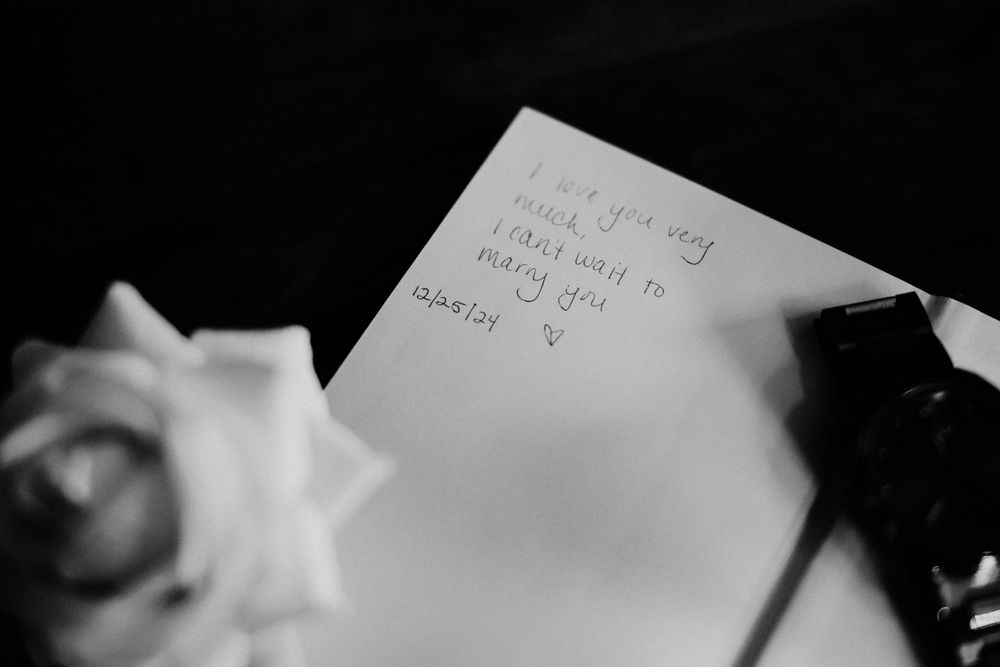 I love you very
much,
I can't wait to
marry you
12/25/24